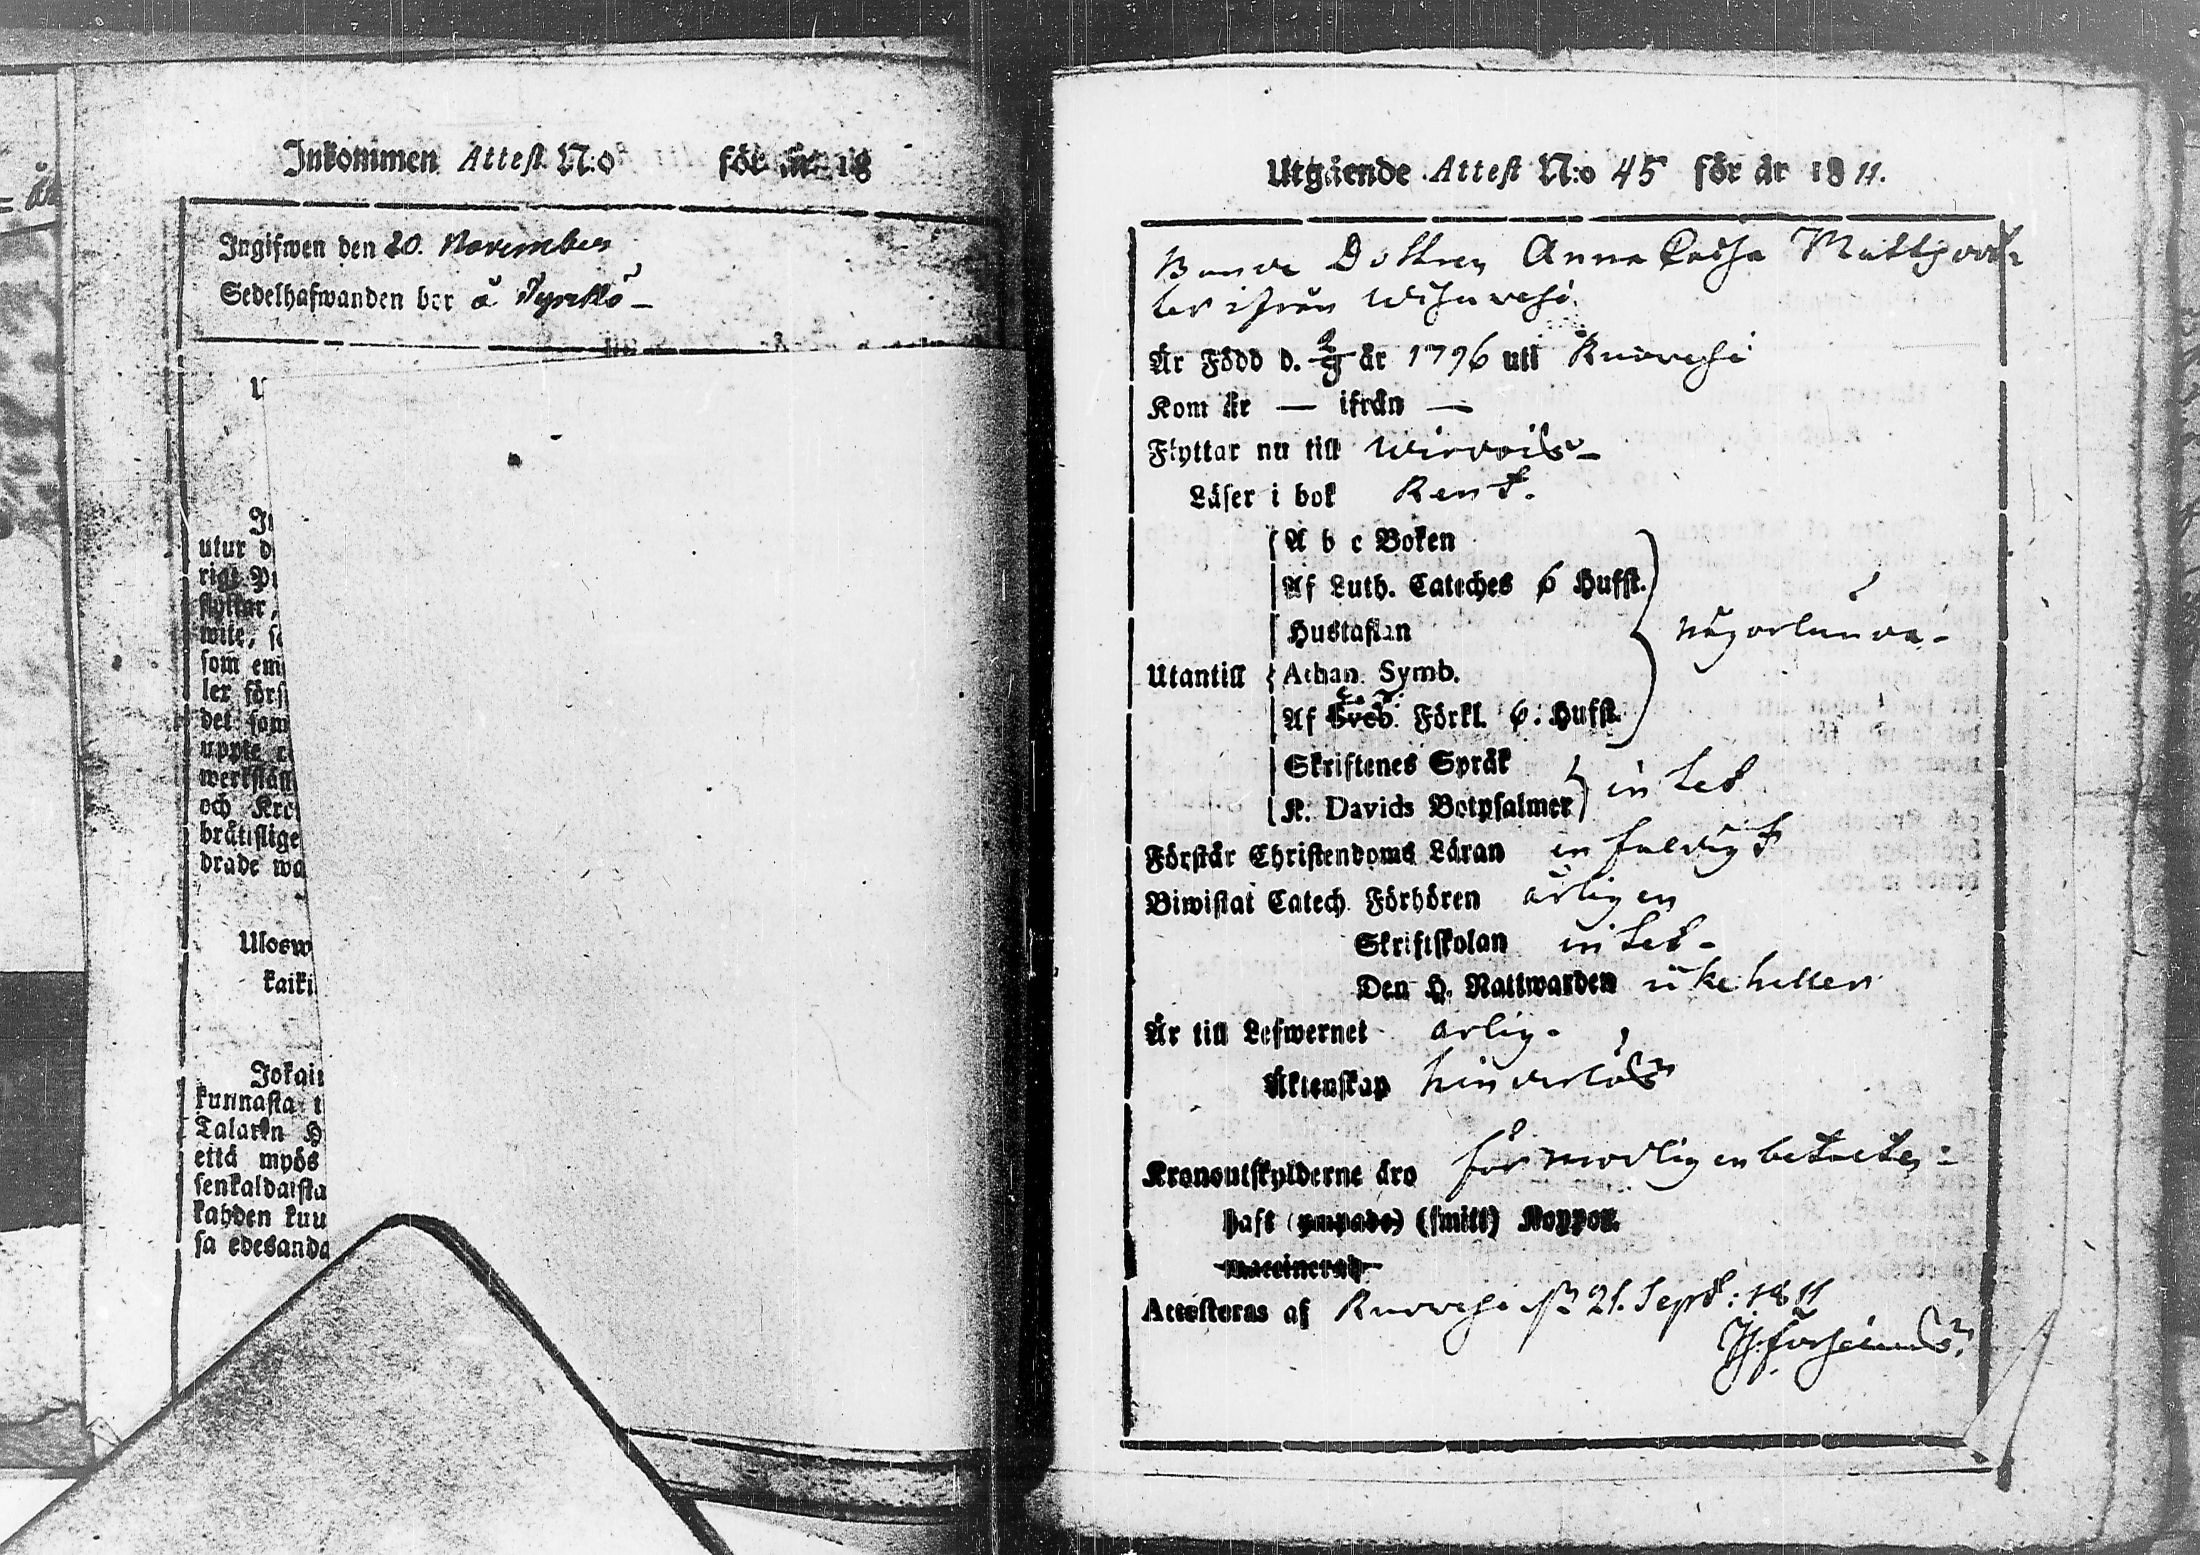 Inkommen Attest N:o för år 18
Ingifwen den 20. November
Sedelhafwanden bor å Tyrkkö –
utur d
rigt P
flyttar,
wite, s
som em
ler förs
det som
uppte
werkställ
och Kro
brätisligen
drade wa
Ulosw
kaiki
Jokai
kunnasta t
Talaren H
että myös
senkaldaista
kahden kuu
sa edesanda
Utgående Attest N:o 45 för år 1811.
Bonde Dottren Anna Caisa Mattzdot-
ter ifrån
Är Född d. 2/9 år 1796 uti Ruovesi
Kom år — ifrån —
Flyttar nu till Wirdois –
Läser i bok Rent.
A b c Boken
Af Luth. Cateches 6 Hufst.
Hustaflan någorlunda –
Utantill Athan. Symb.
Af Sveb. Förkl. 6. Hufst.
Skriftenes Språk
K. Davids Botpsalmer intet
Förstår Christendoms Läran enfaldigt
Biwistat Catech. Förhören årligen
Skriftskolan intet –
Den H. Nattwarden icke heller
Är till Lefwernet ärlig.
Äktenskap hinderlös
Kronoutskylderne äro förmodligen betalte,
haft (ympade) (smitt) Koppor.
vaccinerad
Attesteras af Ruovesi 21. Sept: 1811